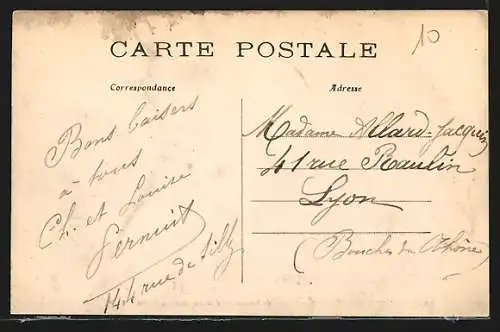 10
CARTE POSTALE
Correspondance
Adresse
Bons baisers
à tous
Ch. et Louise
Pernuit
141 rue de Silly
Madame Allard-Jacquin
41 rue Raulin
Lyon
(Bouches du Rhône)